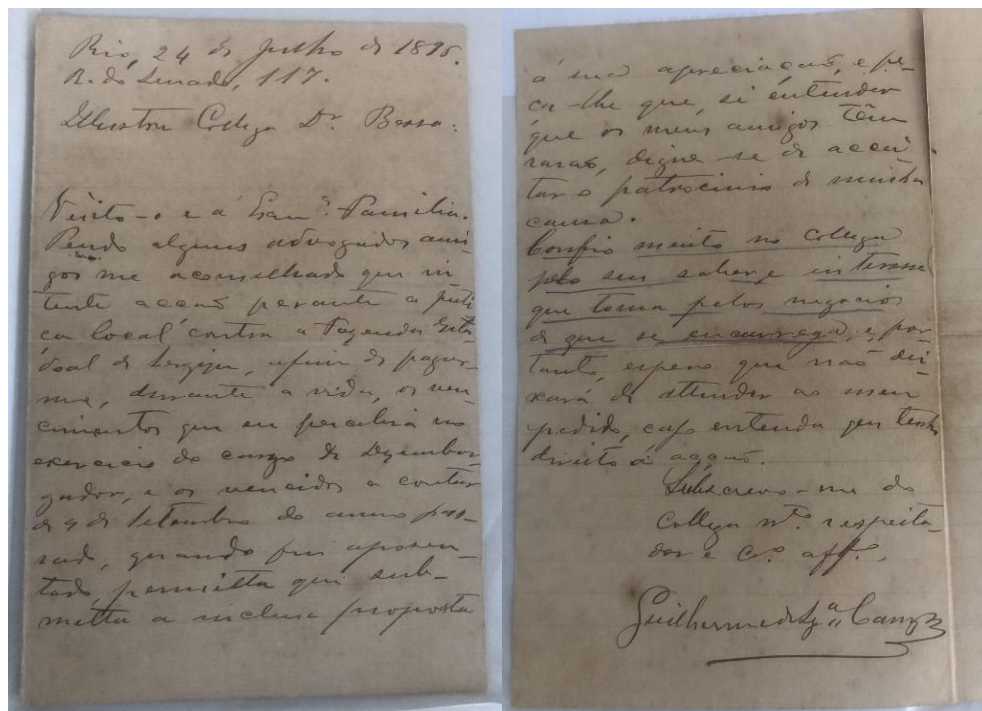 Rio, 24 de Julho de 1895.
R. do Senado, 117.
Illustre Collega Dr. Bessa:
Visito-o e á Exmª. Familia.
Tendo alguns advogados ami-
gos me aconselhado que in
tente acção perante a justi
ça local contra a Fazenda Esta-
doal de Sergipe, afim de pagar-
me, durante a vida, os ven-
cimentos que eu percebia no
exercicio do cargo de Dezembar-
gador, e os vencidos a contar
de 9 de Setembro do anno pas-
sado, quando fui aposen-
tado, permitta que sub-
metta a inclusa proposta
á sua apreciação, e pe-
ça-lhe que, si entender
que os meus amigos têm
rasão, digne-se de accei
tar o patrocinio de minha
causa.
Confio muito no collega
pelo seu saber e interesse
que toma pelos negocios
de que se encarrega, e, por
tanto, espero que não dei-
xará de attender ao meu
pedido, caso entenda que tenho
direito á acção.
Subscrevo-me do
Collega mtº. respeita-
dor e Cº. affº.,
Guilherme de Sza Campos